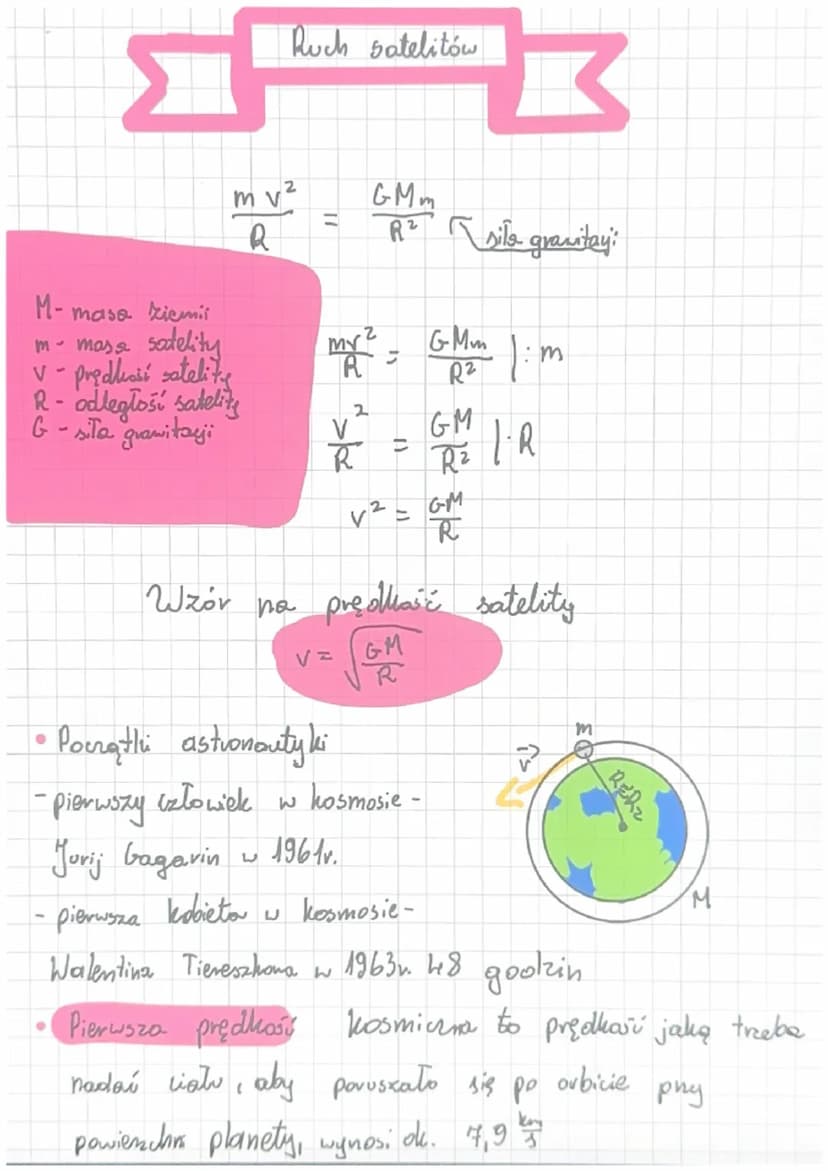 Ruch satelitów
mv²/R = GMm/R²
siła grawitacji
M- masa ziemii
m- masa satelity
v - prędkość satelity
R - odległość satelity
G - siła grawitacji
mv²/R = GMm/R² |: m
v²/R = GM/R² |· R
v² = GM/R
Wzór na prędkość satelity
v = √GM/R
• Początki astronautyki
- pierwszy człowiek w kosmosie -
Jurij Gagarin w 1961r.
- pierwsza kobieta w kosmosie -
Walentina Tiereszkowa w 1963r. 48 godzin
m
v
R≈Rz
M
• Pierwsza prędkość kosmiczna to prędkość jaką trzeba
nadać ciału, aby poruszało się po orbicie przy
powierzchni planety, wynosi ok. 7,9 km/s